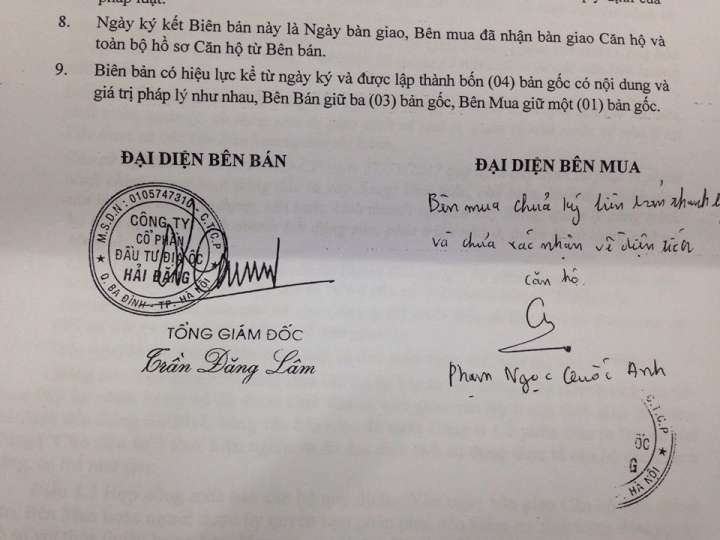 pháp luật.
8. Ngày ký kết Biên bản này là Ngày bàn giao, Bên mua đã nhận bàn giao Căn hộ và
toàn bộ hồ sơ Căn hộ từ Bên bán.
9. Biên bản có hiệu lực kể từ ngày ký và được lập thành bốn (04) bản gốc có nội dung và
giá trị pháp lý như nhau, Bên Bán giữ ba (03) bản gốc, Bên Mua giữ một (01) bản gốc.
ĐẠI DIỆN BÊN BÁN
M.S.D.N: 0105747310 - C.T.C.P
CÔNG TY
CỔ PHẦN
ĐẦU TƯ ĐỊA ỐC
HẢI ĐĂNG
Q. BA ĐÌNH - TP. HÀ NỘI
TỔNG GIÁM ĐỐC
Trần Đăng Lâm
ĐẠI DIỆN BÊN MUA
Bên mua chưa ký
và chưa xác nhận về diện tích
căn hộ.
Phạm Ngọc Quốc Anh
C.T.C.P
ỐC
G
HÀ NỘI